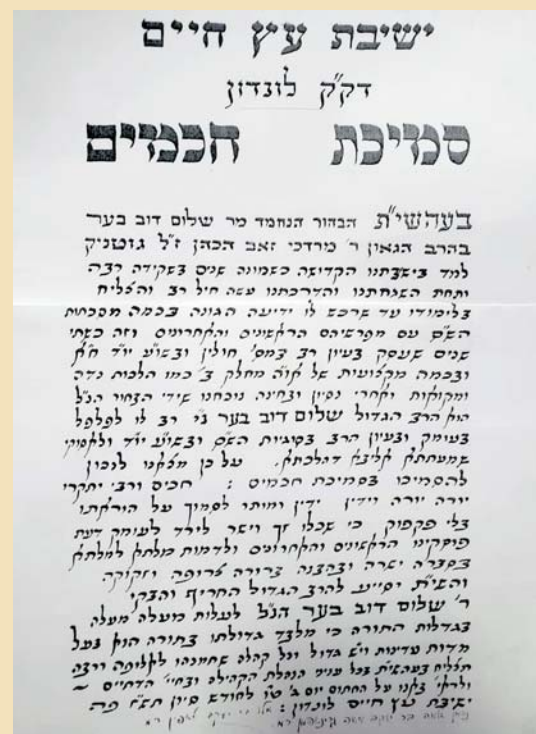 ישיבת עץ חיים
דק"ק לונדון
סמיכת חכמים
בעהשי"ת הבחור הנחמד מר שלום דוב בער
בהרב הגאון ר' מרדכי זאב הכהן ז"ל גוטניק
למד בישיבתנו הקדושה כשמונה שנים בשקידה רבה
ותחת השגחתנו והדרכתנו עשה חיל רב והצליח
בלימודו עד שרכש לו ידיעה הגונה בכמה מסכתות
הש"ס עם מפרשיהם הראשונים והאחרונים וזה כשתי
שנים שעסק בעיון רב במס' חולין ובשו"ע יו"ד ח"א
ובכמה מקצועות של או"ה מחלק ב' כמו הלכות נדה
ומקואות ואחרי נסיון ובחינה נוכחנו שידי הבחור הנ"ל
הוא הרב הגדול שלום דוב בער ני' רב לו לפלפל
בעומק ובעיון הרב בסוגיות הש"ס ובשו"ע יו"ד ולאסוקי
שמעתתא אליבא דהלכתא. על כן מצאנו לנכון
להסמיכו בסמיכת חכמים : חכים ורבי יתקרי
יורה יורה וידין ידין ומותר לסמוך על הוראתו
בלי פקפוק כי שכלו זך וישר לירד לעומק דעת
פוסקינו הראשונים והאחרונים ולדמות מלתא למלתא
בסברה ישרה ובהבנה ברורה צרופה וזקוקה
והשי"ת יסייע להרב הגדול החריף והבקי
ר' שלום דוב בער הנ"ל לעלות מעלה מעלה
בגדלות התורה כי מלבד גדולתו בתורה הוא בעל
מדות עדינות ויש גדול וכל קהלה שתמנהו לאלופה ורבה
תצליח בעהשי"ת בכל עניני הנהלת הקהילה ובחיי' הדתיים ~
ולראי' באנו על החתום יום ג' ט"ו לחודש סיון תש"ח פה
ישיבת עץ חיים לונדון :